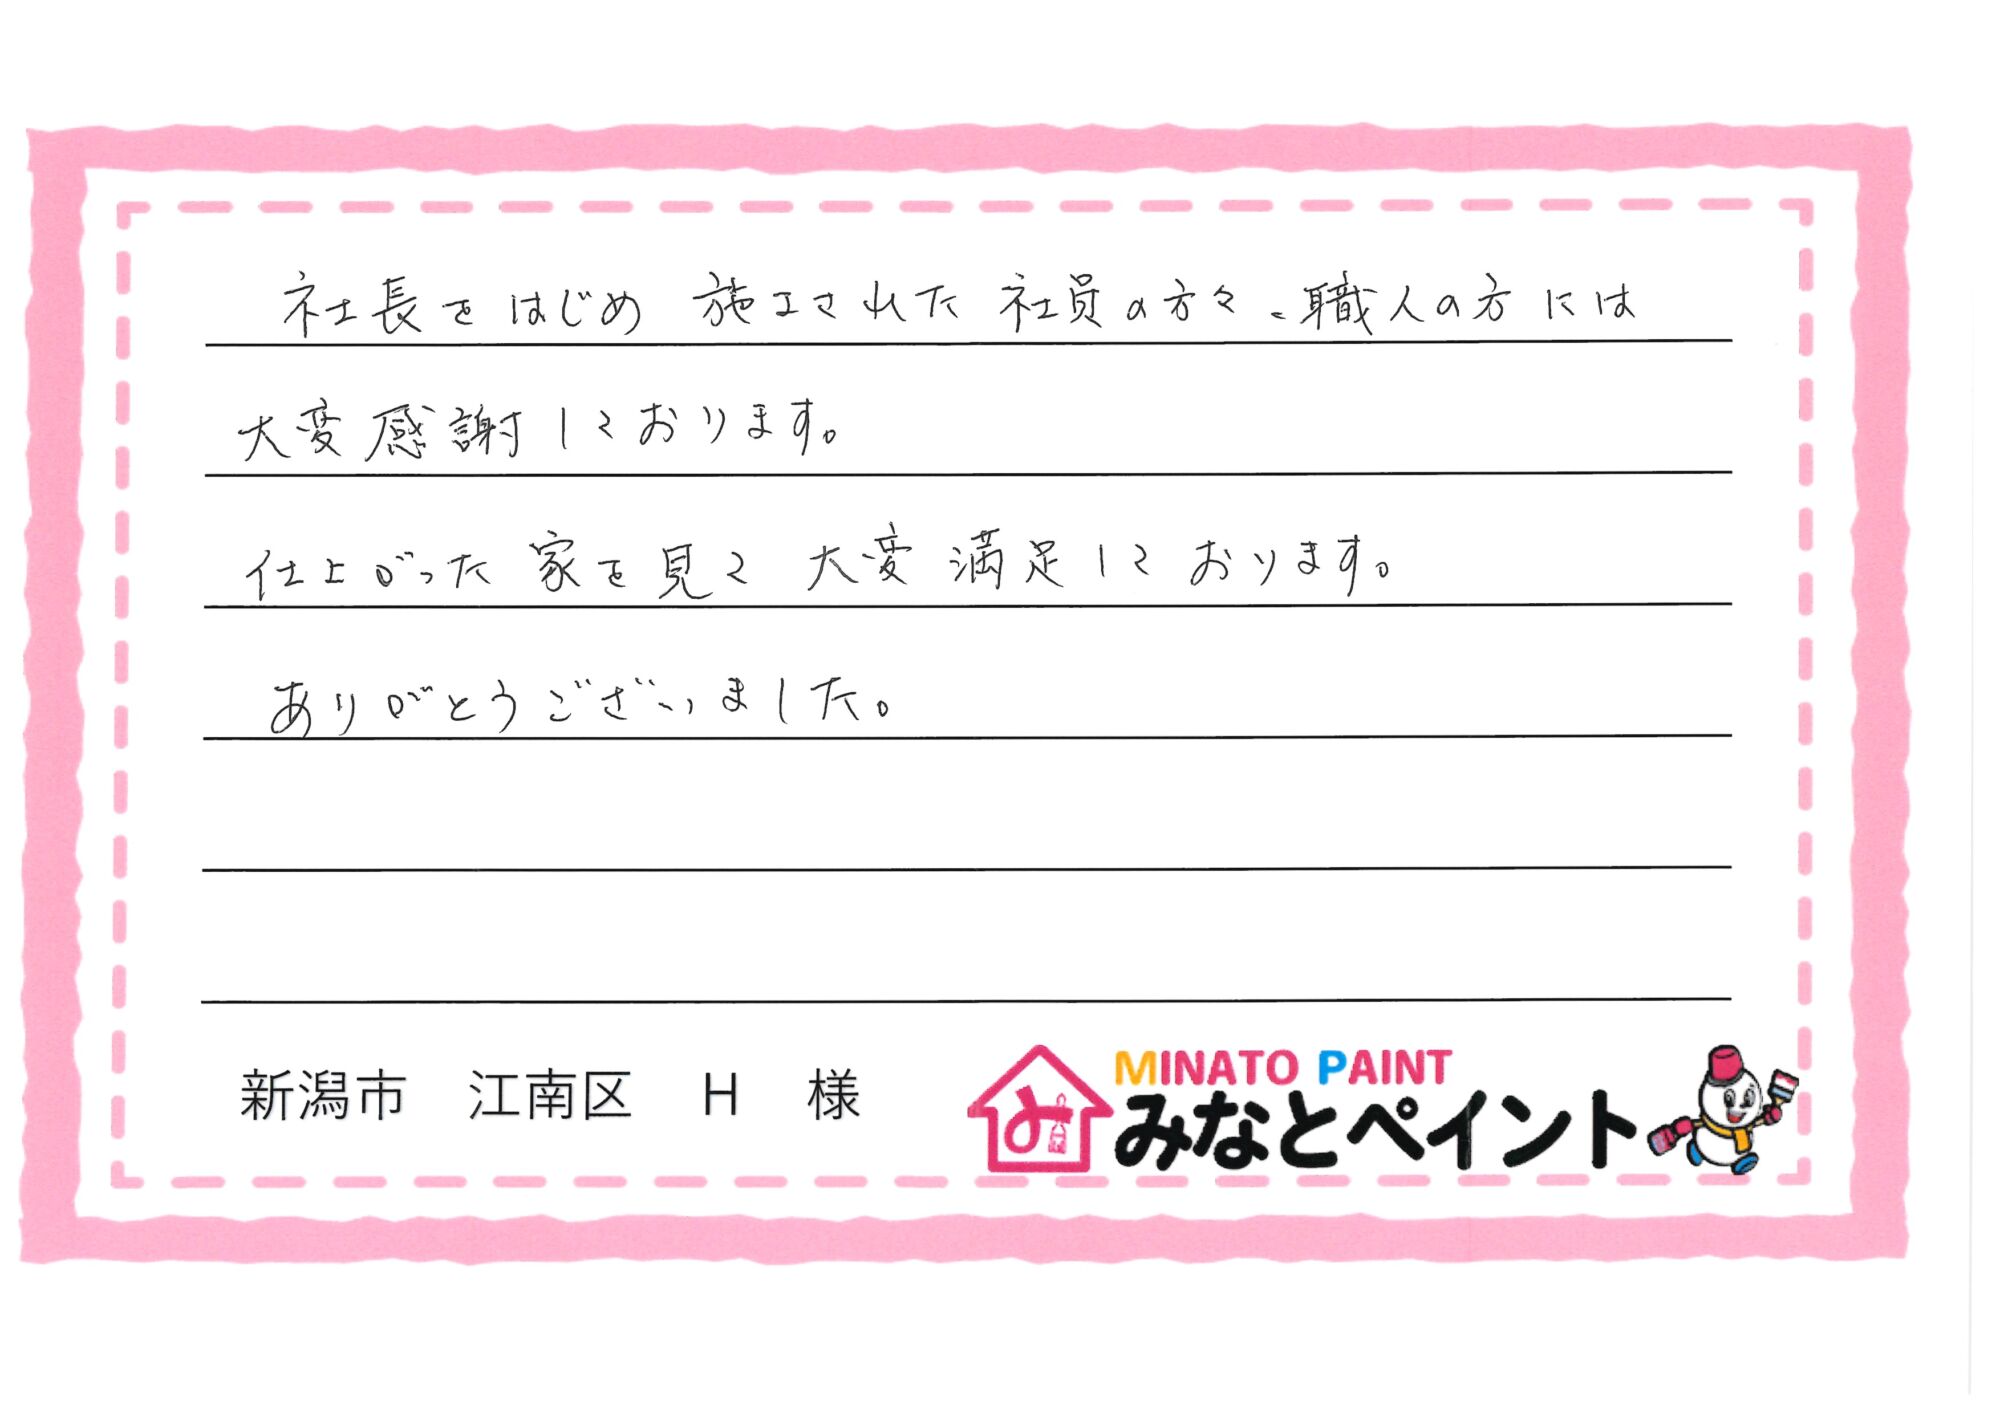 社長をはじめ 施工された 社員の方々、職人の方には
大変感謝しております。
仕上がった 家を見て 大変満足しております。
ありがとうございました。
新潟市 江南区 H 様
MINATO PAINT
みなとペイント